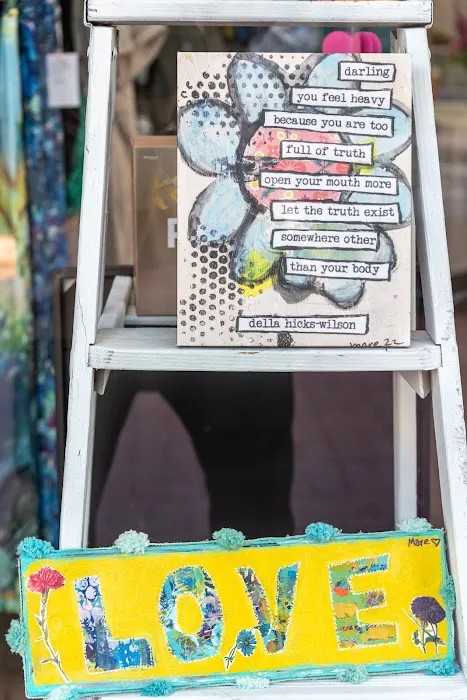 darling
you feel heavy
because you are too
full of truth
open your mouth more
let the truth exist
somewhere other
than your body
della hicks-wilson
mare 22
Mare ♡
LOVE